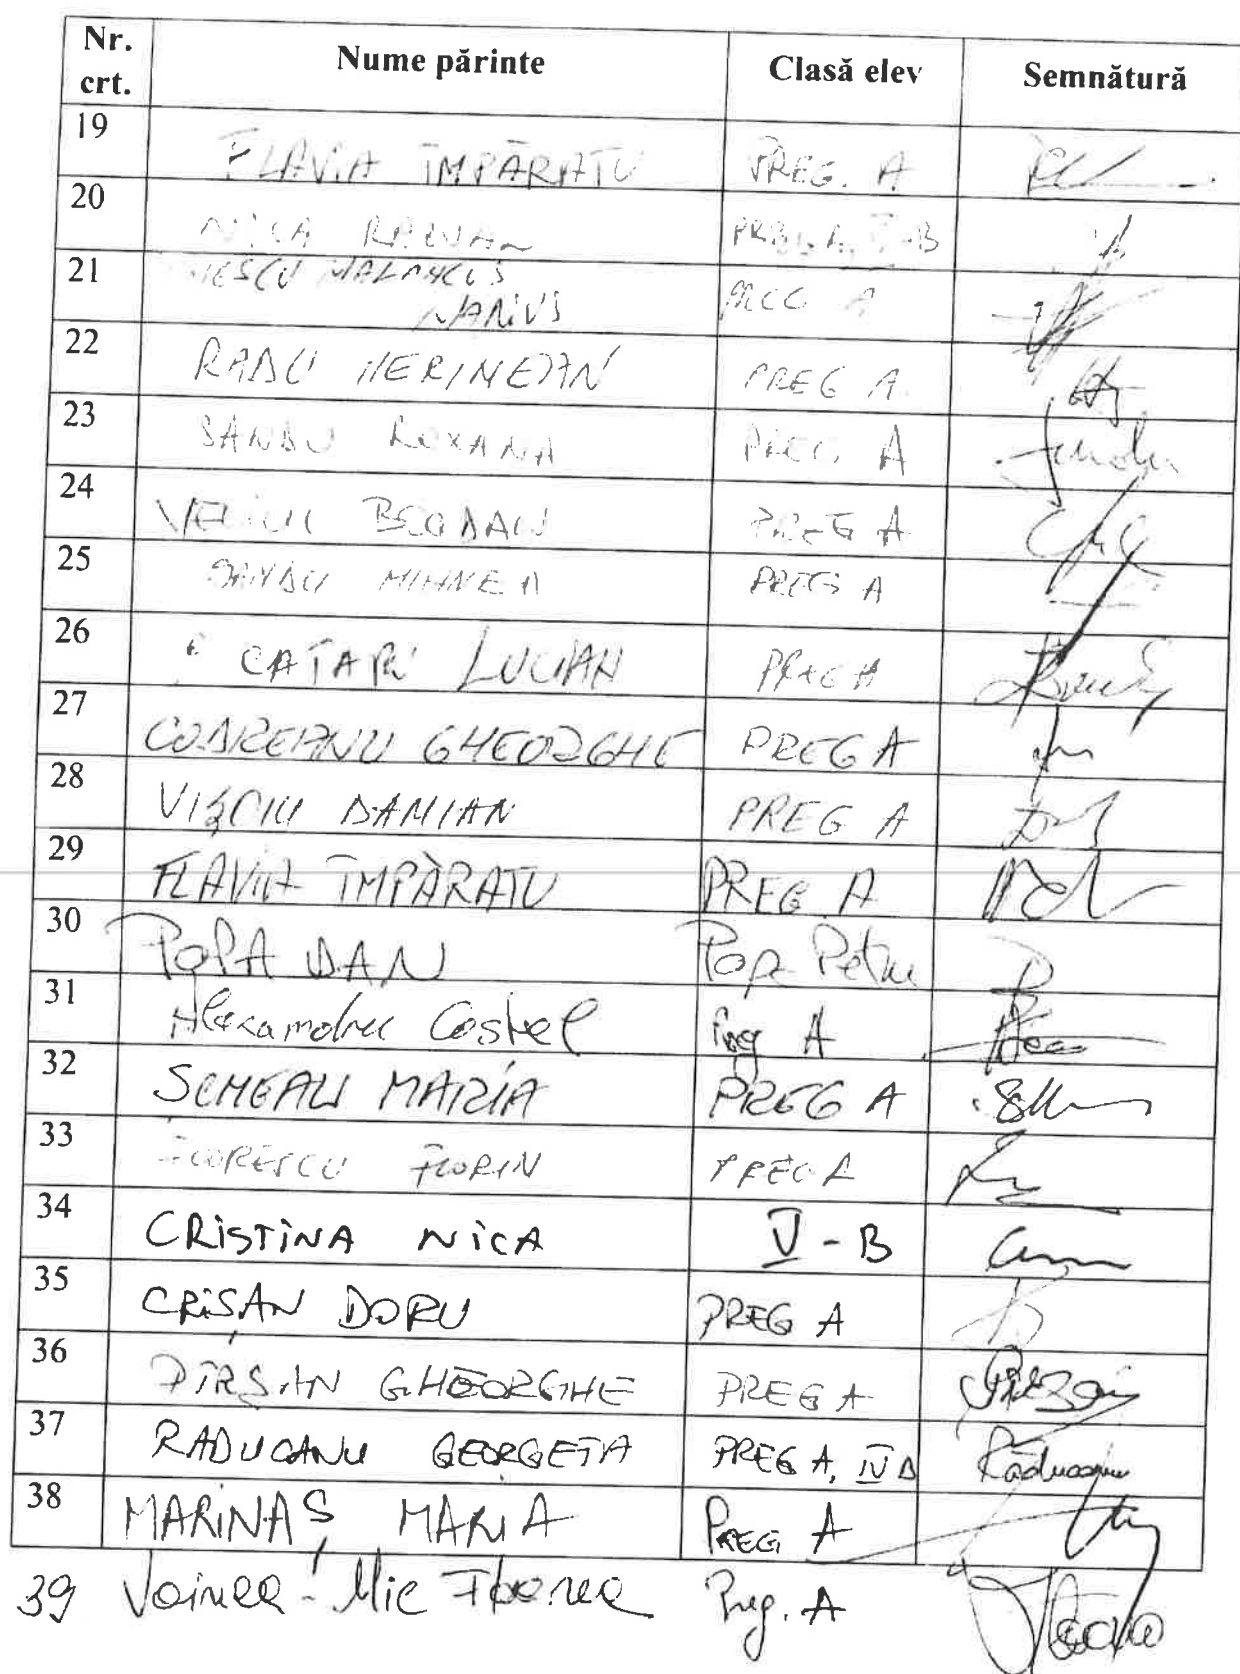 Nr. crt. Nume părinte Clasă elev Semnătură
19 FLAVIA ÎMPĂRATU PREG. A
20 NICA RĂZVAN PREG. A, V-B
21
MARIUS A
22 RADU MERINEAN PREG A
23 SANDU ROXANA PREG. A
24 BOGDAN PREG A
25 SANDU MIHNEA PREG A
26 CATARI LUCIAN PREG A
27 CODREANU GHEORGHE PREG A
28 DAMIAN PREG A
29 FLAVIA ÎMPĂRATU PREG A
30 POPA DAN Popa Petru
31 Alexandru Costel Preg A
32 MARIA PREG A
33 FLORESCU FLORIN PREG A
34 CRISTINA NICA V - B
35 CRIȘAN DORU PREG A
36 PÎRȘAN GHEORGHE PREG A
37 RADUCANU GEORGETA PREG A, IV B Răducanu
38 MARINAȘ MARIA PREG A
39 Voinea - Mic Preg. A